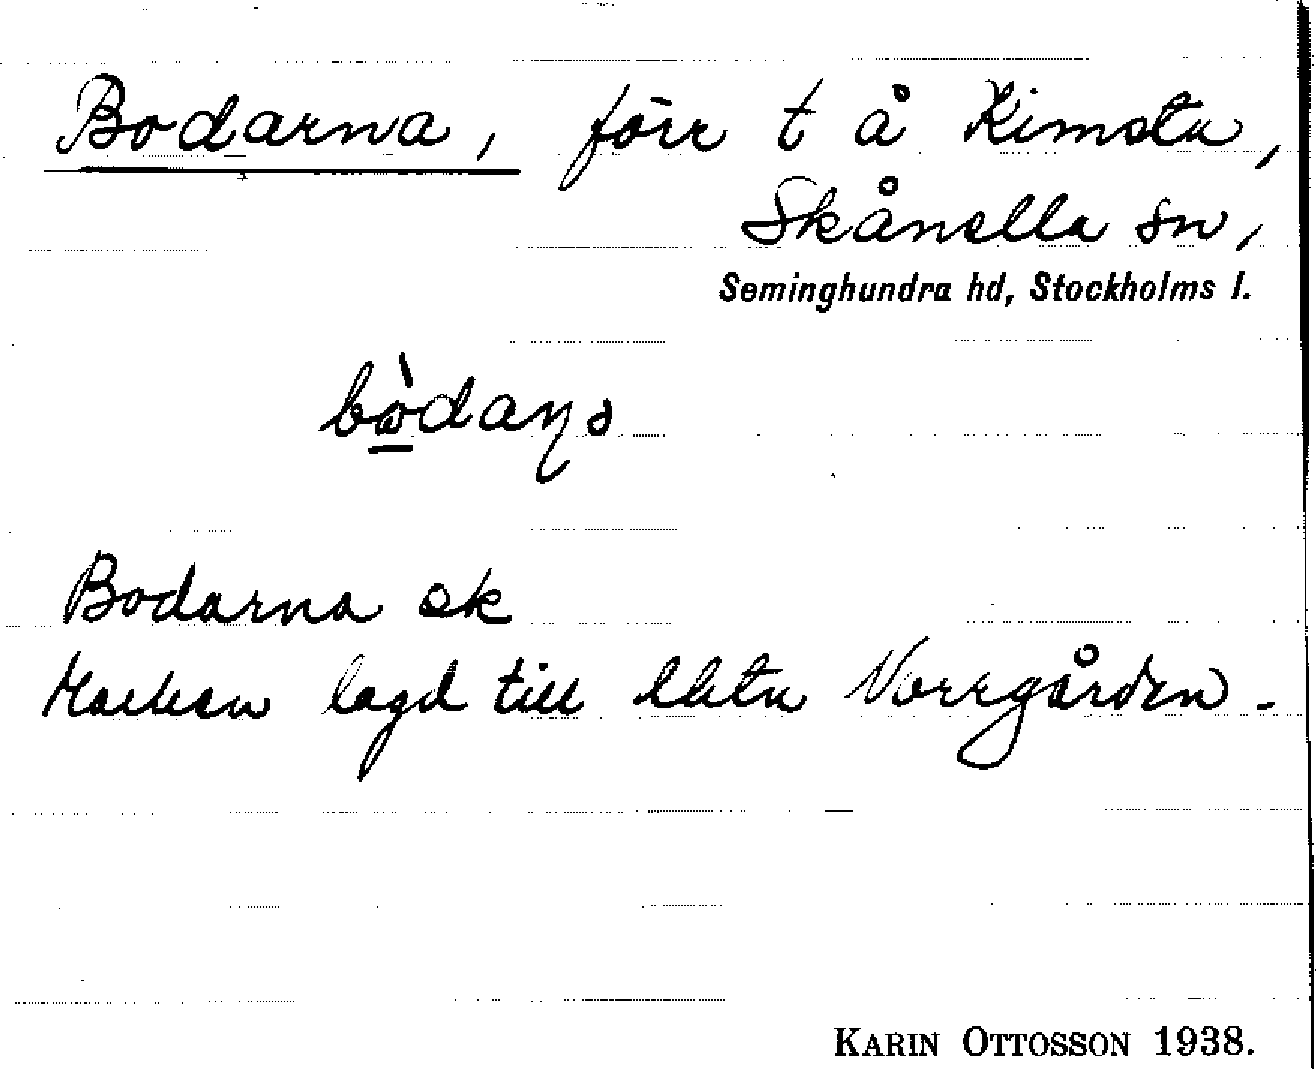 Bodarna, förr t å Kimsta,
Skånella sn,
Seminghundra hd, Stockholms l.
Bodarna ek
Marken lagd till Norrgården.
KARIN OTTOSSON 1938.